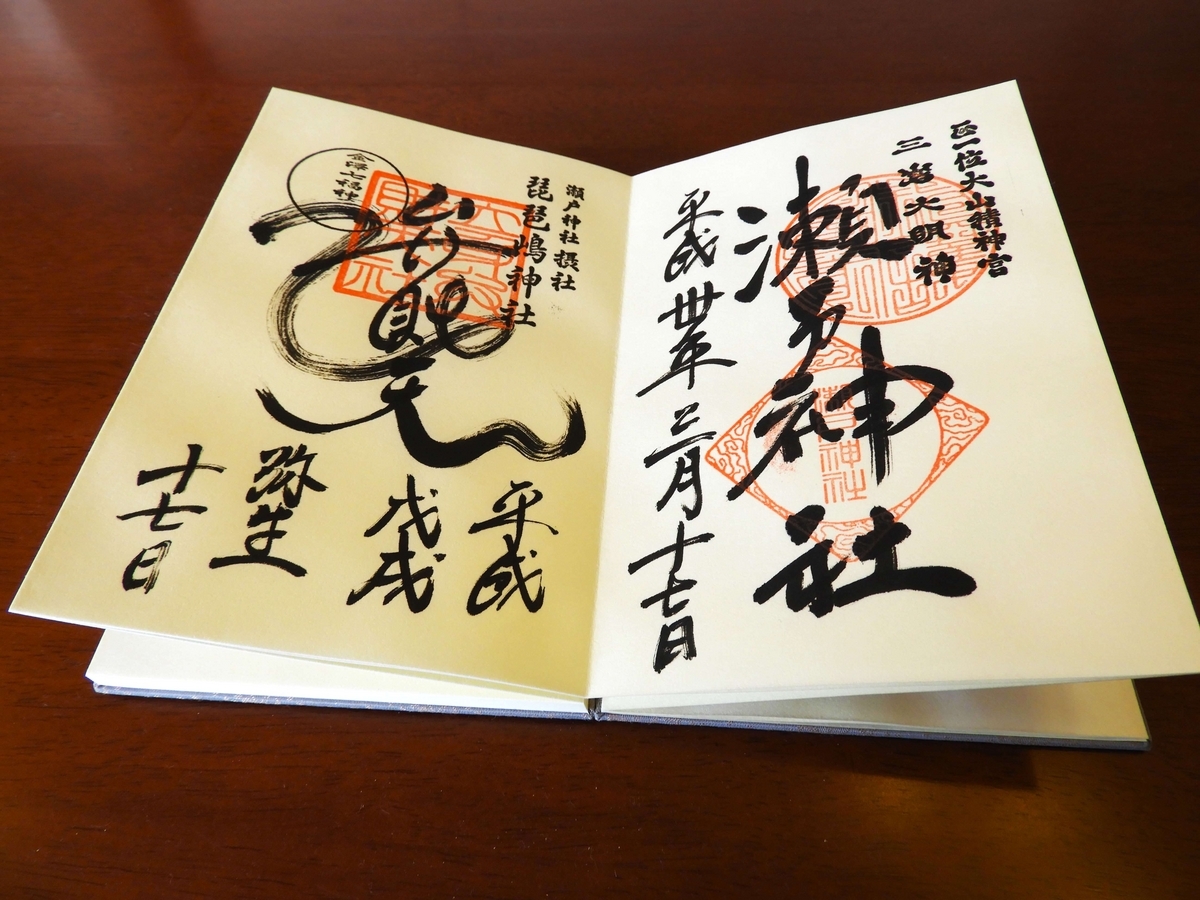 正一位大山積神宮
三嶋大明神
瀬戸神社
平成卅年三月十七日
瀬戸神社摂社
琵琶嶋神社
弁財天
金澤七福神
平成
戊戌
弥生
十七日